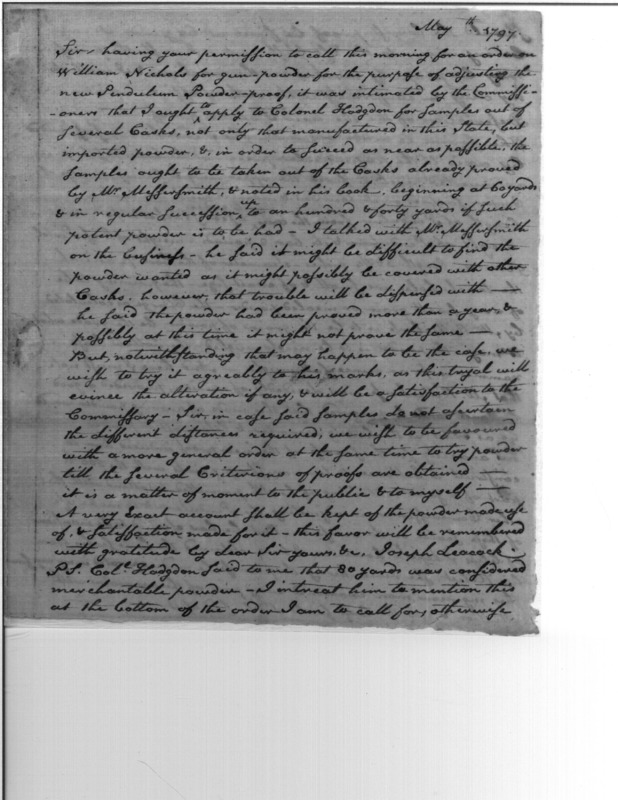 May th 1797.
Sir, having your permission to call this morning for an order on
William Nichols for gun-powder for the purpose of adjusting the
new Pendulum Powder-proof, it was intimated by the Commissi-
-oners that I ought to apply to Colonel Hodgdon for Samples out of
Several Casks, not only that manufactured in this State, but
imported powder, &, in order to succeed as near as possible, the
Samples ought to be taken out of the Casks already proved
by Mr. Messersmith, & noted in his book, beginning at 60 yards
& in regular Succession, up to an hundred & forty yards if such
potent powder is to be had - I talked with Mr. Messersmith
on the business - he said it might be difficult to find the
powder wanted as it might possibly be covered with other
Casks. however, that trouble will be dispensed with —
he said the powder had been proved more than a year, &
possibly at this time it might not prove the same —
But, notwithstanding that may happen to be the case, we
wish to try it agreeably to his marks, as this tryal will
evince the alteration if any, & will be a satisfaction to the
Commissary - Sir, in case said samples do not ascertain
the different distances required, we wish to be favoured
with a more general order at the same time to try powder
till the several Criterions of proofs are obtained —
it is a matter of moment to the public & to myself —
A very Exact account shall be kept of the powder made use
of, & satisfaction made for it - this favor will be remembered
with gratitude by dear Sir yours, &c. Joseph Leacock.
P.S. Col. Hodgdon said to me that 80 yards was considered
merchantable powder - I intreat him to mention this
at the bottom of the order I am to call for, otherwise